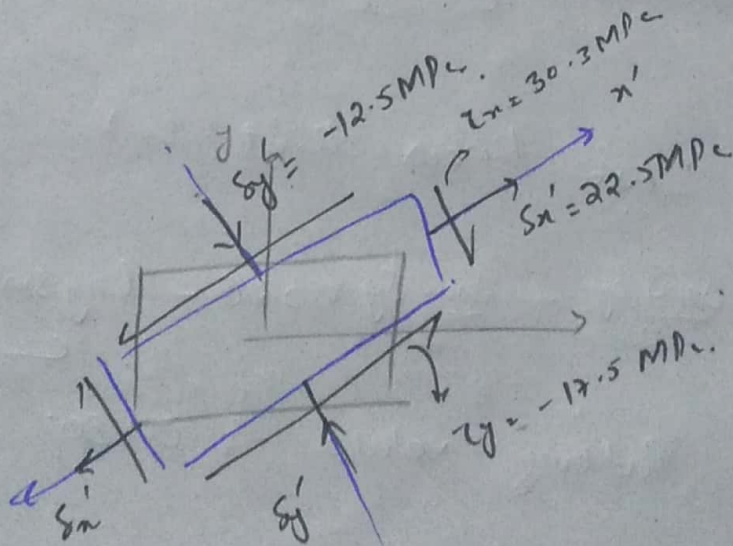 y
Sy' = -12.5 MPa.
τx = 30.3 MPa
x'
Sx' = 22.5 MPa
τy = -17.5 MPa.
Sx'
Sy'